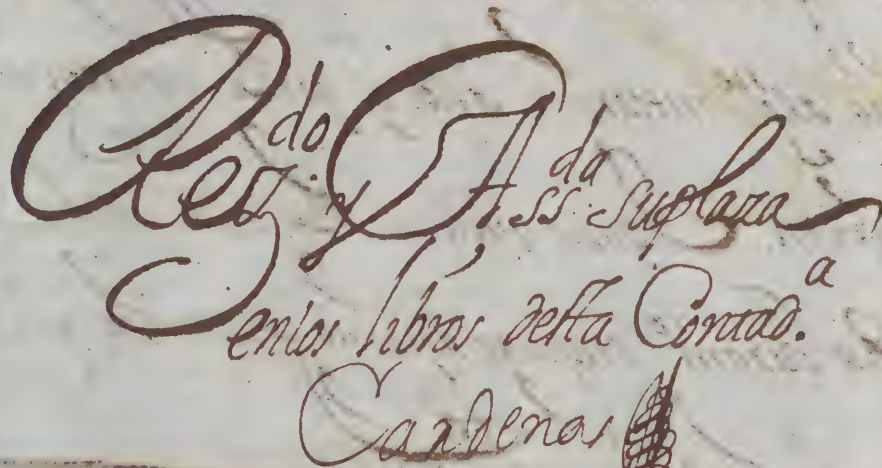 Rez.do y Ass.da su plaza
en los libros desta Contad.a
Cardenas